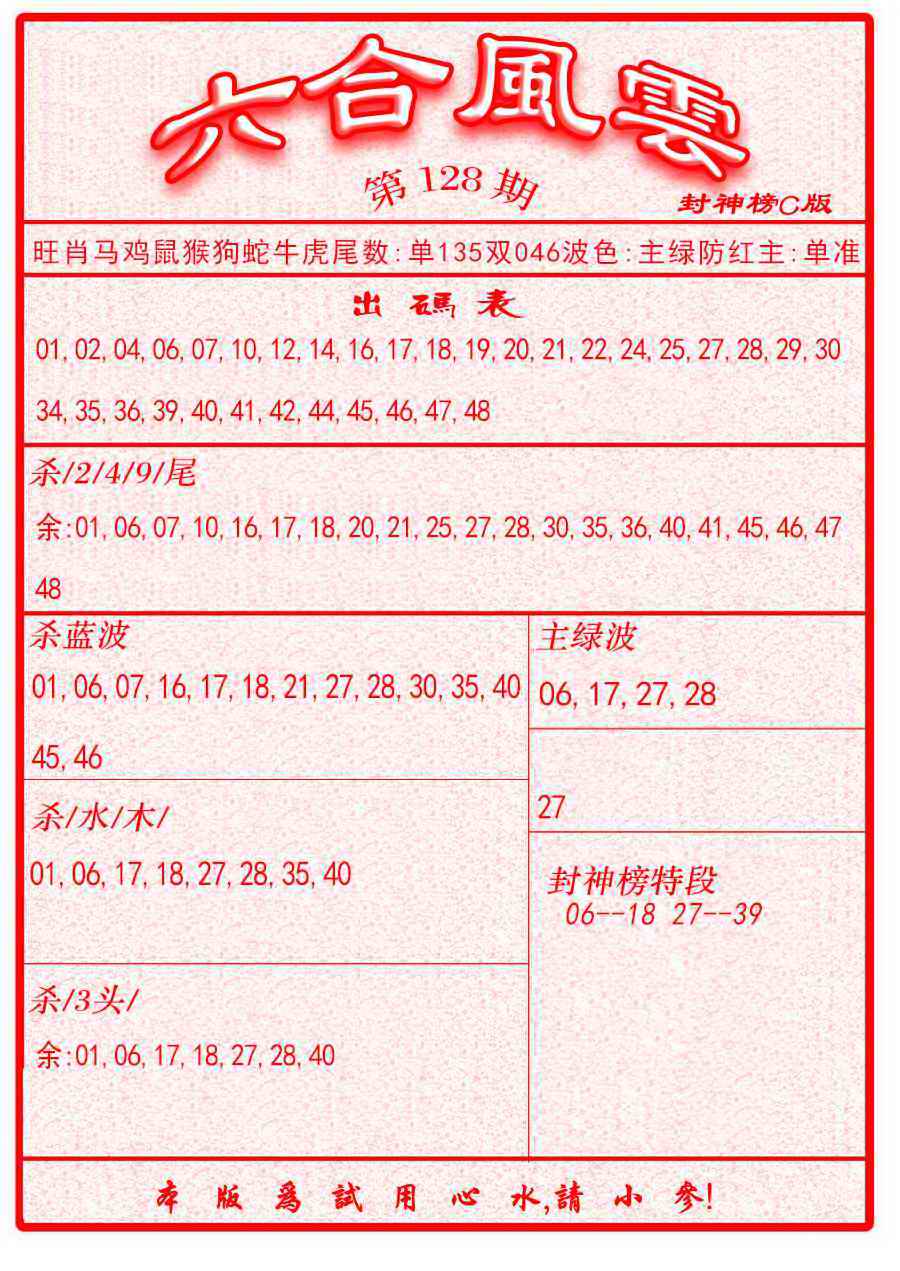 六合風雲
第128期
封神榜C版
旺肖马鸡鼠猴狗蛇牛虎尾数:单135双046波色:主绿防红主:单准
出碼表
01,02,04,06,07,10,12,14,16,17,18,19,20,21,22,24,25,27,28,29,30
34,35,36,39,40,41,42,44,45,46,47,48
杀/2/4/9/尾
余:01,06,07,10,16,17,18,20,21,25,27,28,30,35,36,40,41,45,46,47
48
杀蓝波
01,06,07,16,17,18,21,27,28,30,35,40
45,46
主绿波
06,17,27,28
27
杀/水/木/
01,06,17,18,27,28,35,40
封神榜特段
06--18 27--39
杀/3头/
余:01,06,17,18,27,28,40
本版爲試用心水,請小參!